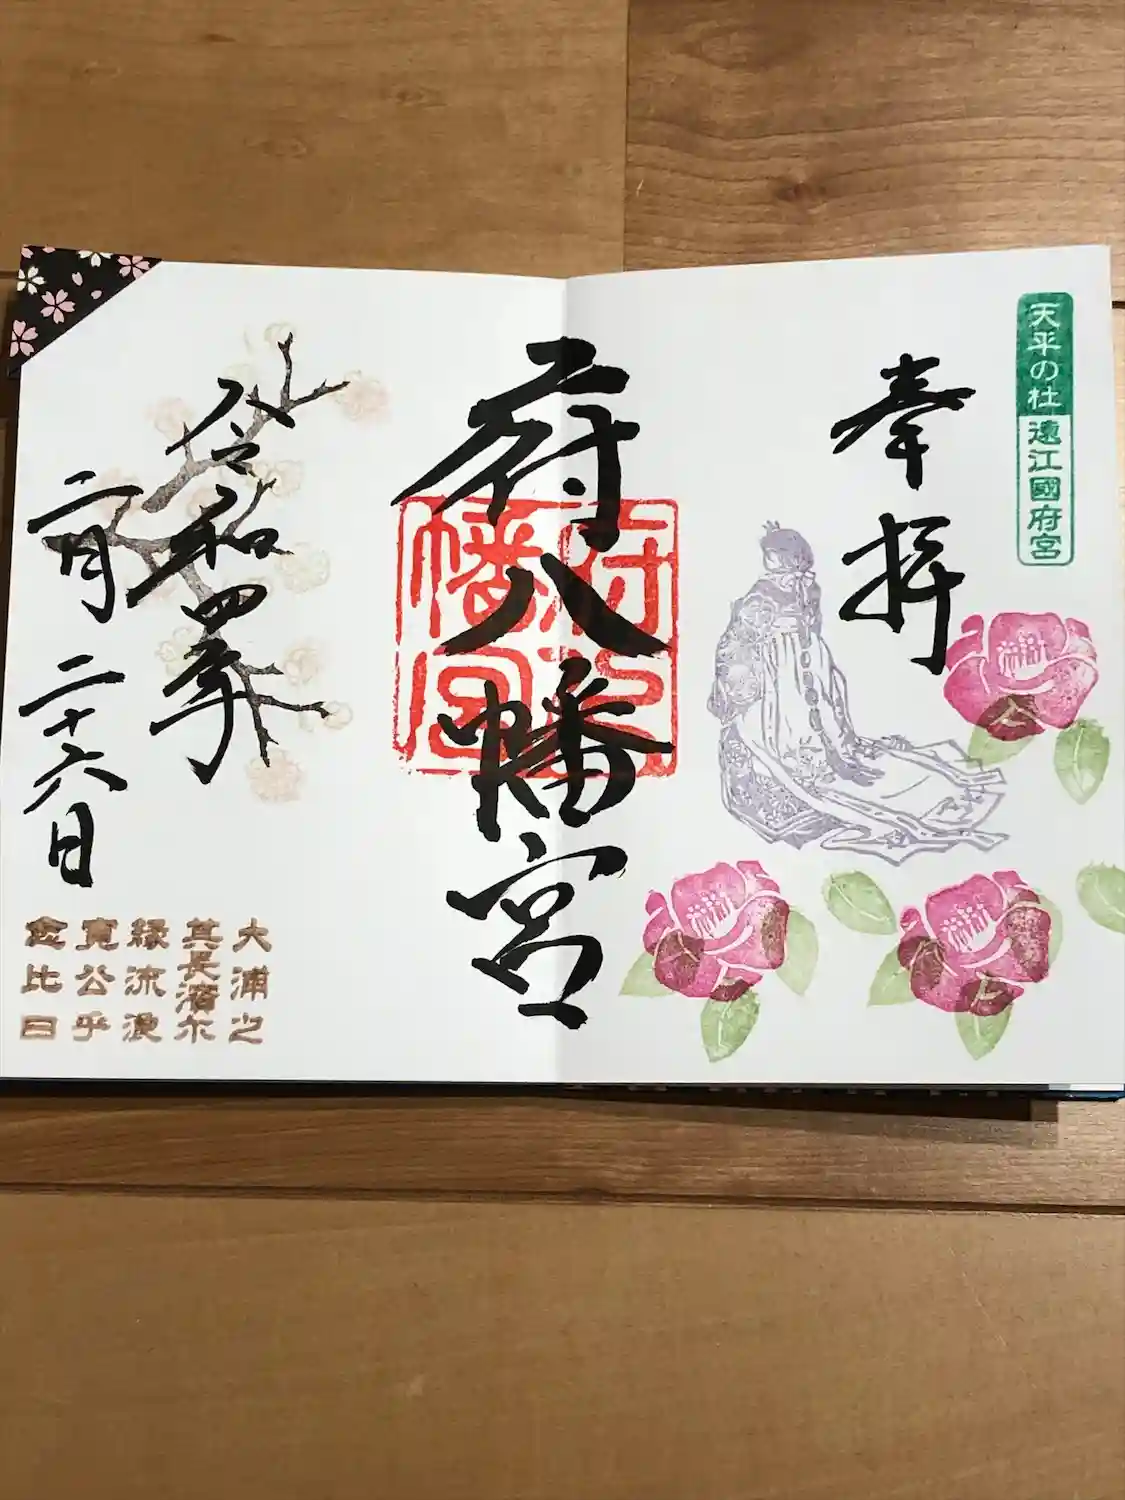 天平の杜 遠江國府宮
奉拝
府八幡宮
府八幡宮
令和四年
二月二十六日
大浦之
其長濱尓
縁流浪
寛公乎
念比日